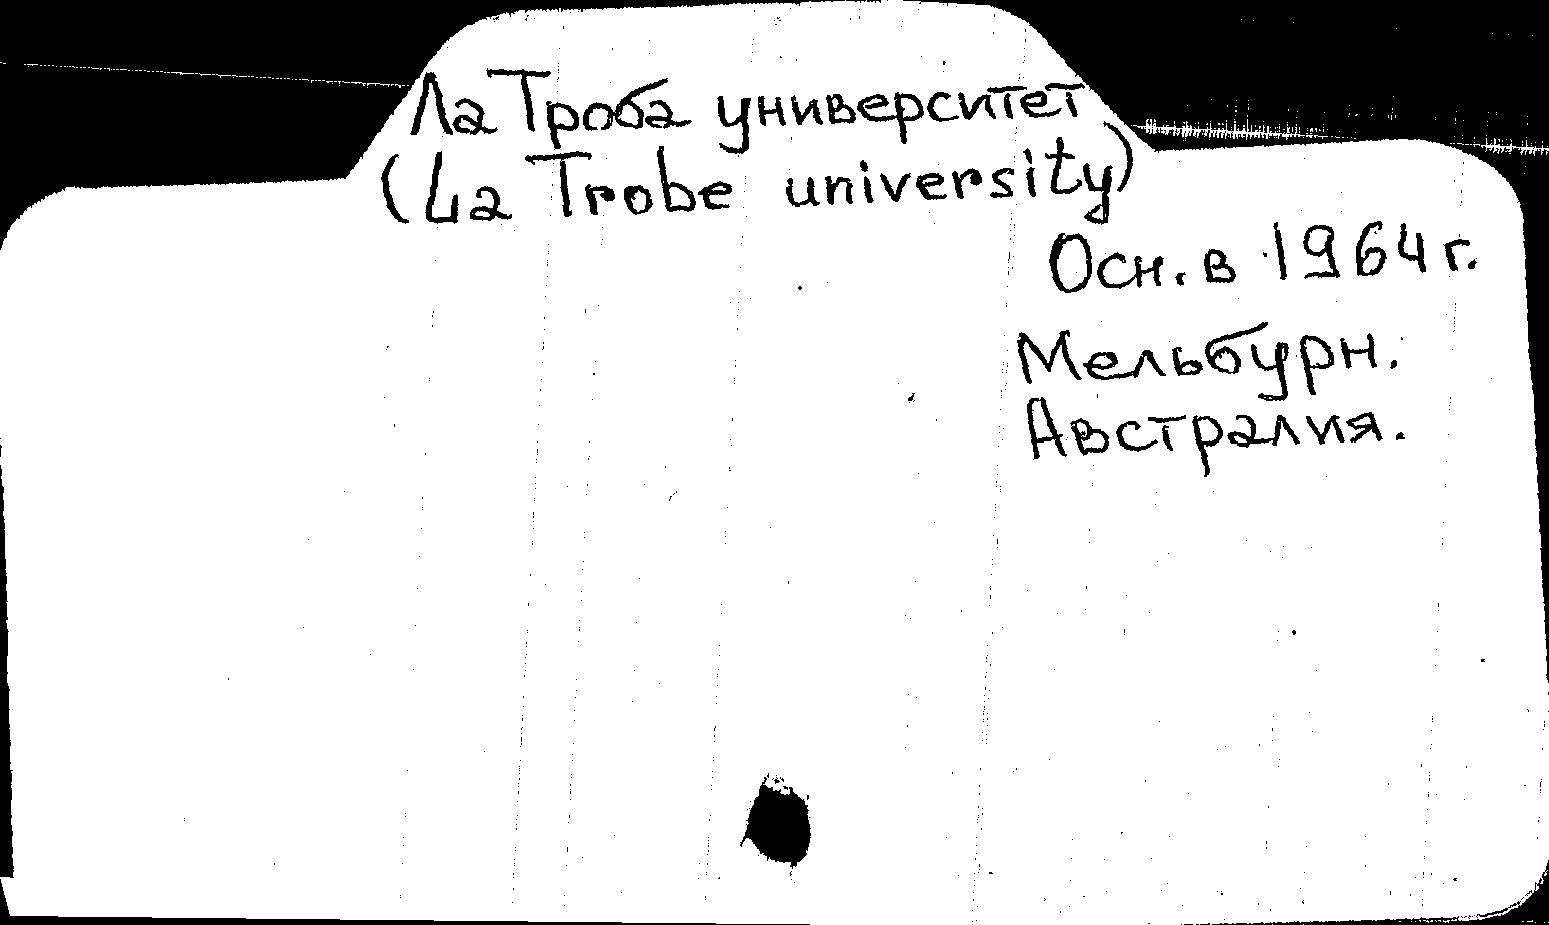 Ла Троба университет
(La Trobe university)
Осн. в 1964 г.
Мельбурн.
Австралия.